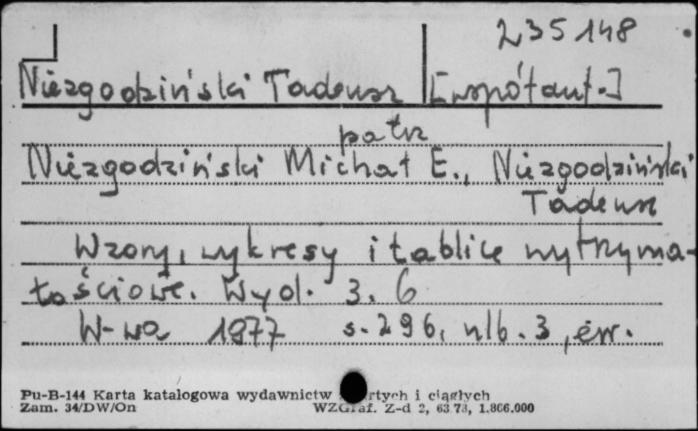 235148
Niezgodziński Tadeusz [współaut.]
patrz
Niezgodziński Michał E., Niezgodziński
Tadeusz
Wzory, wykresy i tablice wytrzyma-
łościowe. Wyd. 3. 6
W-wa 1977 s. 296, nlb. 3, err.
Pu-B-144 Karta katalogowa wydawnictw i ciągłych
Zam. 34/DW/On WZGraf. Z-d 2, 63 73, 1.866.000